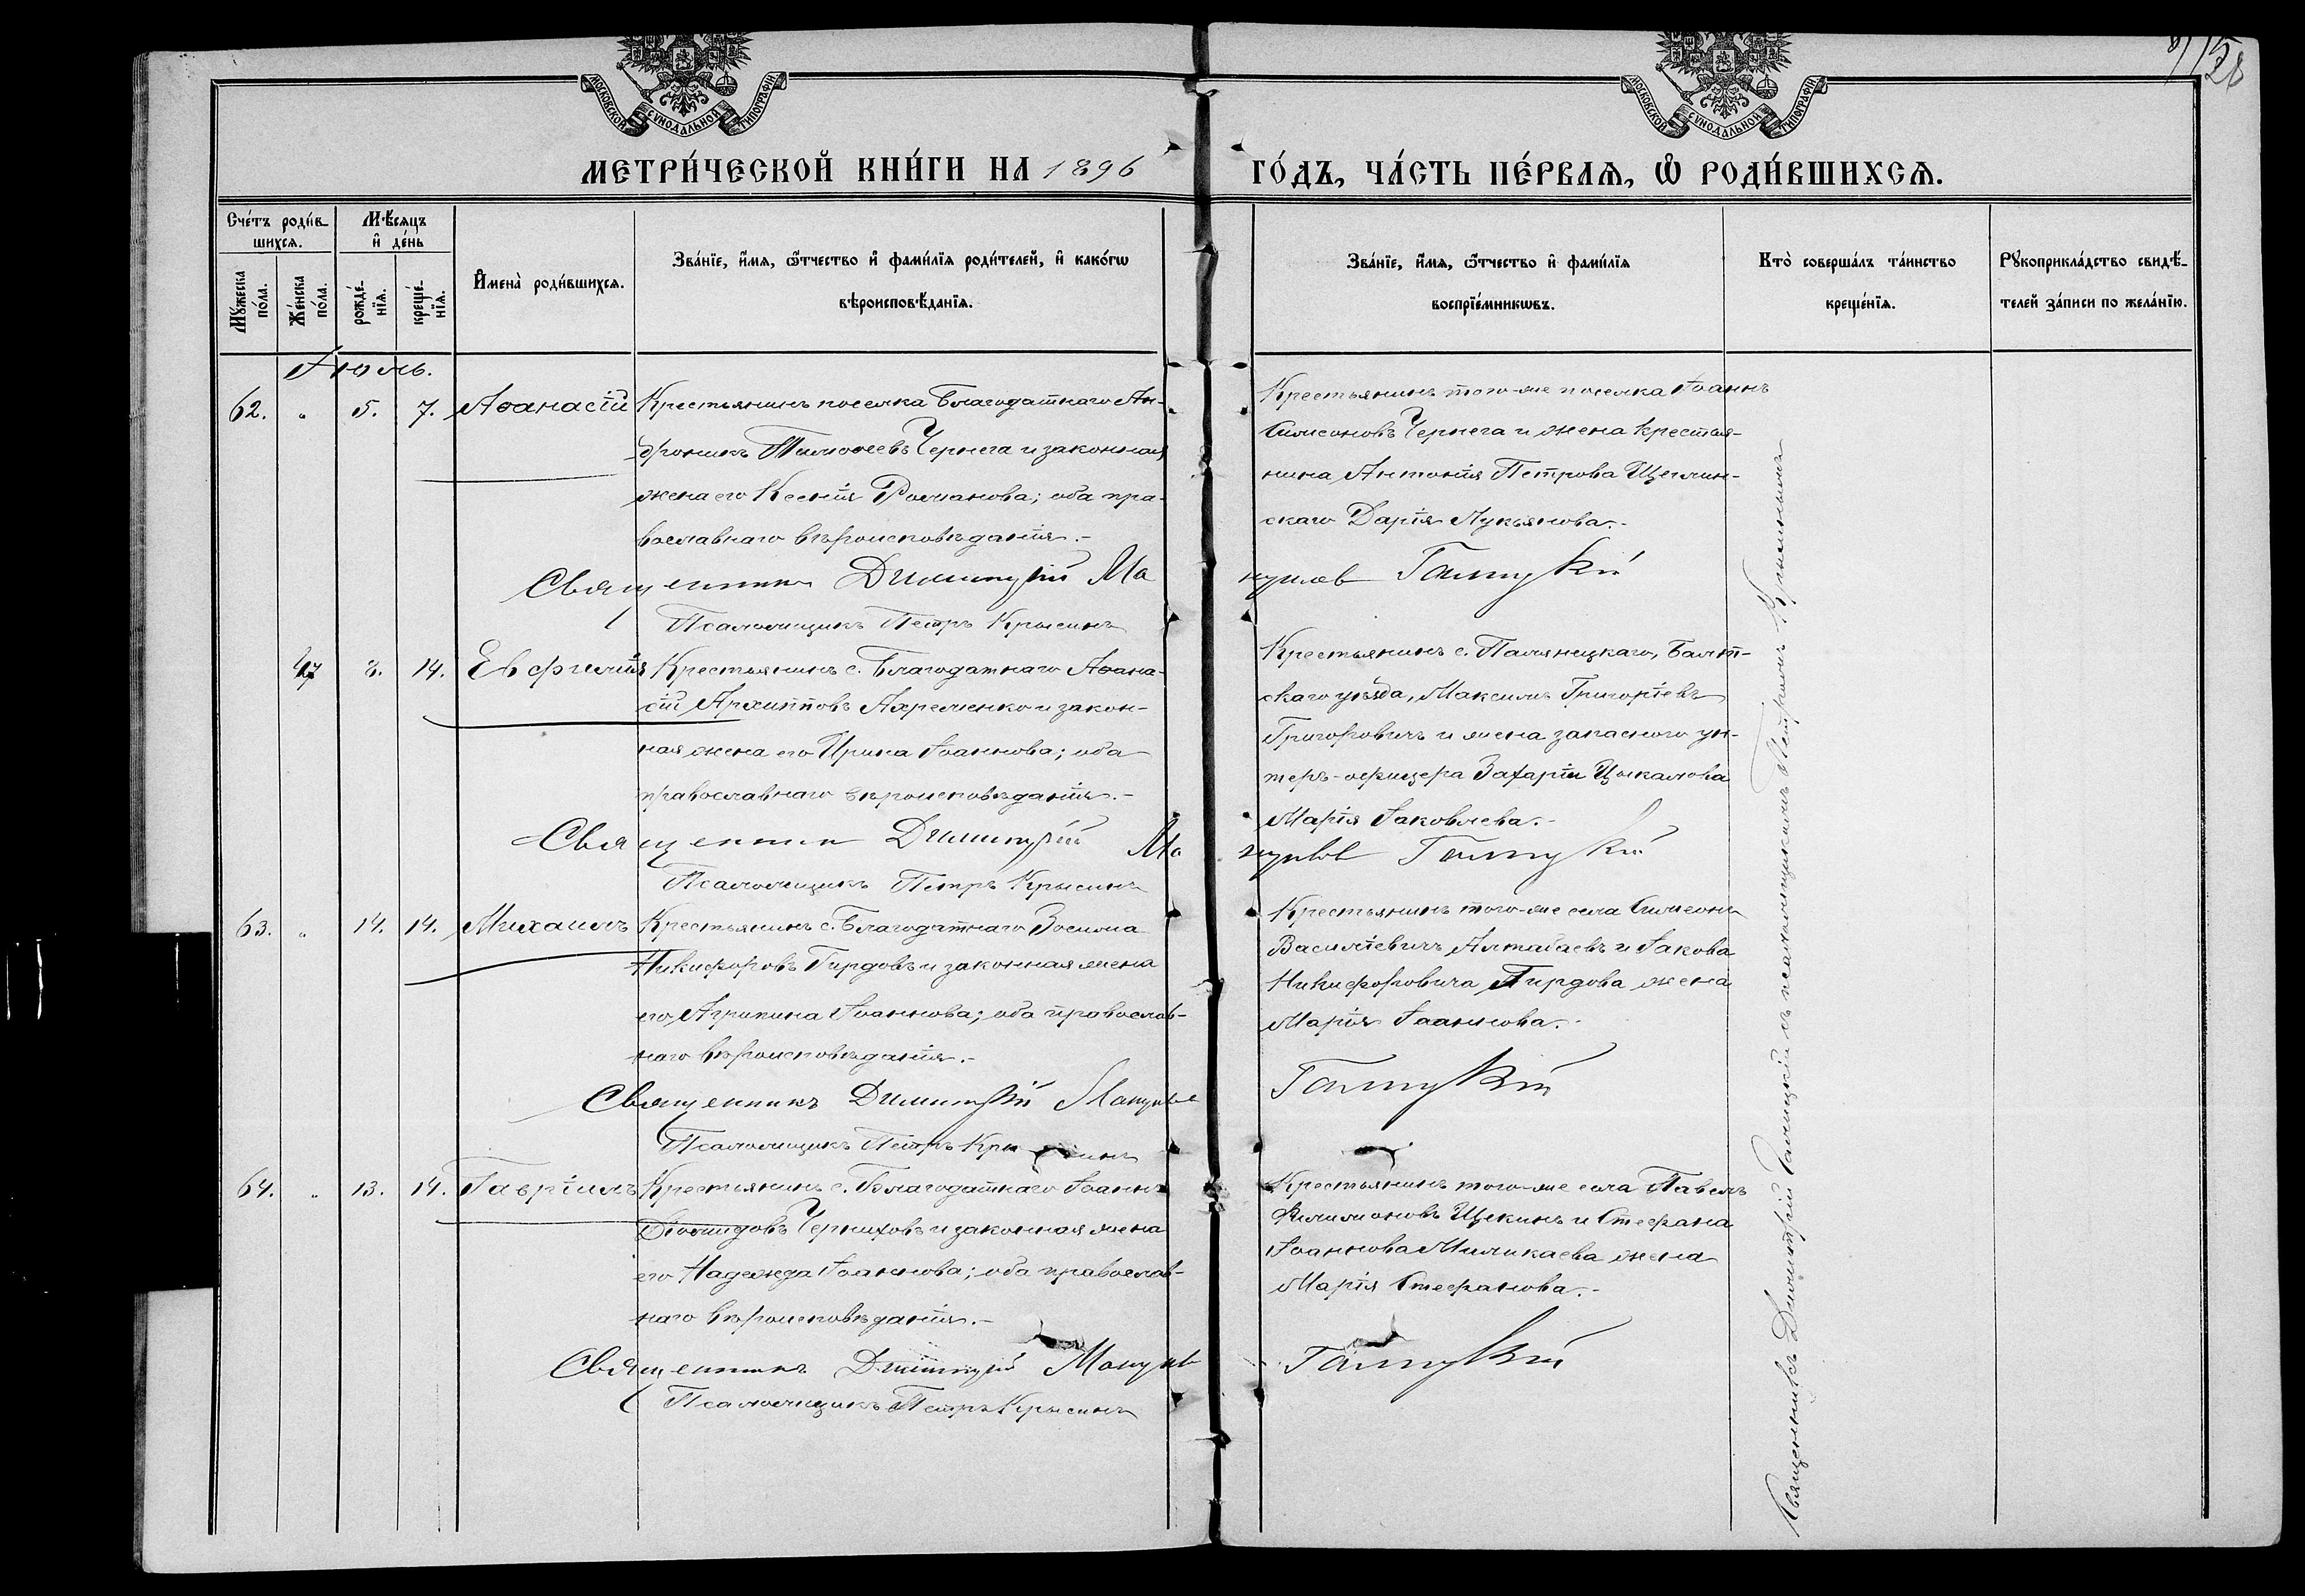 МОСКОВСКОЙ СѴНОДАЛЬНОЙ ТИПОГРАФІИ
МОСКОВСКОЙ СѴНОДАЛЬНОЙ ТИПОГРАФІИ
128
МЕТРИ́ЧЕСКОЙ КНИ́ГИ НА 1896
ГО́ДЪ, ЧА́СТЬ ПЕ́РВАѦ, Ѡ҆ РОДИ́ВШИХСѦ.
Сче́тъ роди́в-
шихсѧ.
Мꙋ́жеска по́ла.
Же́нска по́ла.
Мѣ́сяцъ
и҆ де́нь
рожде́-
нїѧ.
креще́-
нїѧ.
И҆мена̀ роди́вшихсѧ.
Зва́нїе, и҆́мѧ, ѻ҆́тчество и҆ фами́лїѧ роди́телей, и҆ како́гѡ
вѣроисповѣ́данїѧ.
Зва́нїе, и҆́мѧ, ѻ҆́тчество и҆ фами́лїѧ
воспрїе́мникѡвъ.
Кто̀ соверша́лъ та́инство
креще́нїѧ.
Рꙋкоприкла́дство свидѣ́-
телей за́писи по жела́нїю.
Іюль.
62. „ 5. 7. Аѳанасій Крестьянинъ поселка Благодатнаго Ан-
дроникъ Тимоѳеевъ Чернега и законная
жена его Ксенія Романова; оба пра-
вославнаго вѣроисповѣданія.-
Крестьянинъ того-же поселка Іоаннъ
Симеоновъ Чернега и жена крестья-
нина Антонія Петрова Щеглин-
скаго Дарія Лукьянова.-
Священникъ Димитрій Ма
Галицкій
Псаломщикъ Петръ Крысинъ
47 8. 14. Евфимія Крестьянинъ с. Благодатнаго Аѳана-
сій Архипповъ Ахременко и закон-
ная жена его Ирина Іоаннова; оба
православнаго вѣроисповѣданія.-
Крестьянинъ с. Палянецкаго, Балт-
скаго уѣзда, Максимъ Григоріевъ
Григоровичъ и жена запаснаго ун-
теръ-офицера Захарія Цыкалова
Марія Іаковлева.-
Священникъ Димитрій Ма
Галицкій
Псаломщикъ Петръ Крысинъ
63. „ 14. 14. Михаилъ Крестьянинъ с. Благодатнаго Зосима
Никифоровъ Гирдовъ и законная жена
его Агрипина Іоаннова; оба православ-
наго вѣроисповѣданія.-
Крестьянинъ того-же села Симеонъ
Василіевичъ Алтабаевъ и Іакова
Никифоровича Гирдова жена
Марія Іоаннова.-
Священникъ Димитрій
Галицкій
Псаломщикъ Петръ Крысинъ
64. „ 13. 14. Гавріилъ Крестьянинъ с. Благодатнаго Іоаннъ
Діомидовъ Черниховъ и законная жена
его Надежда Іоаннова; оба православ-
наго вѣроисповѣданія.-
Крестьянинъ того-же села Павелъ
Филимоновъ Щекинъ и Стефана
Іоаннова Миликаева жена
Марія Стефанова.-
Священникъ Димитрій
Галицкій
Псаломщикъ Петръ Крысинъ
Священникъ Димитрій Галицкій съ псаломщикомъ Петромъ Крысинымъ